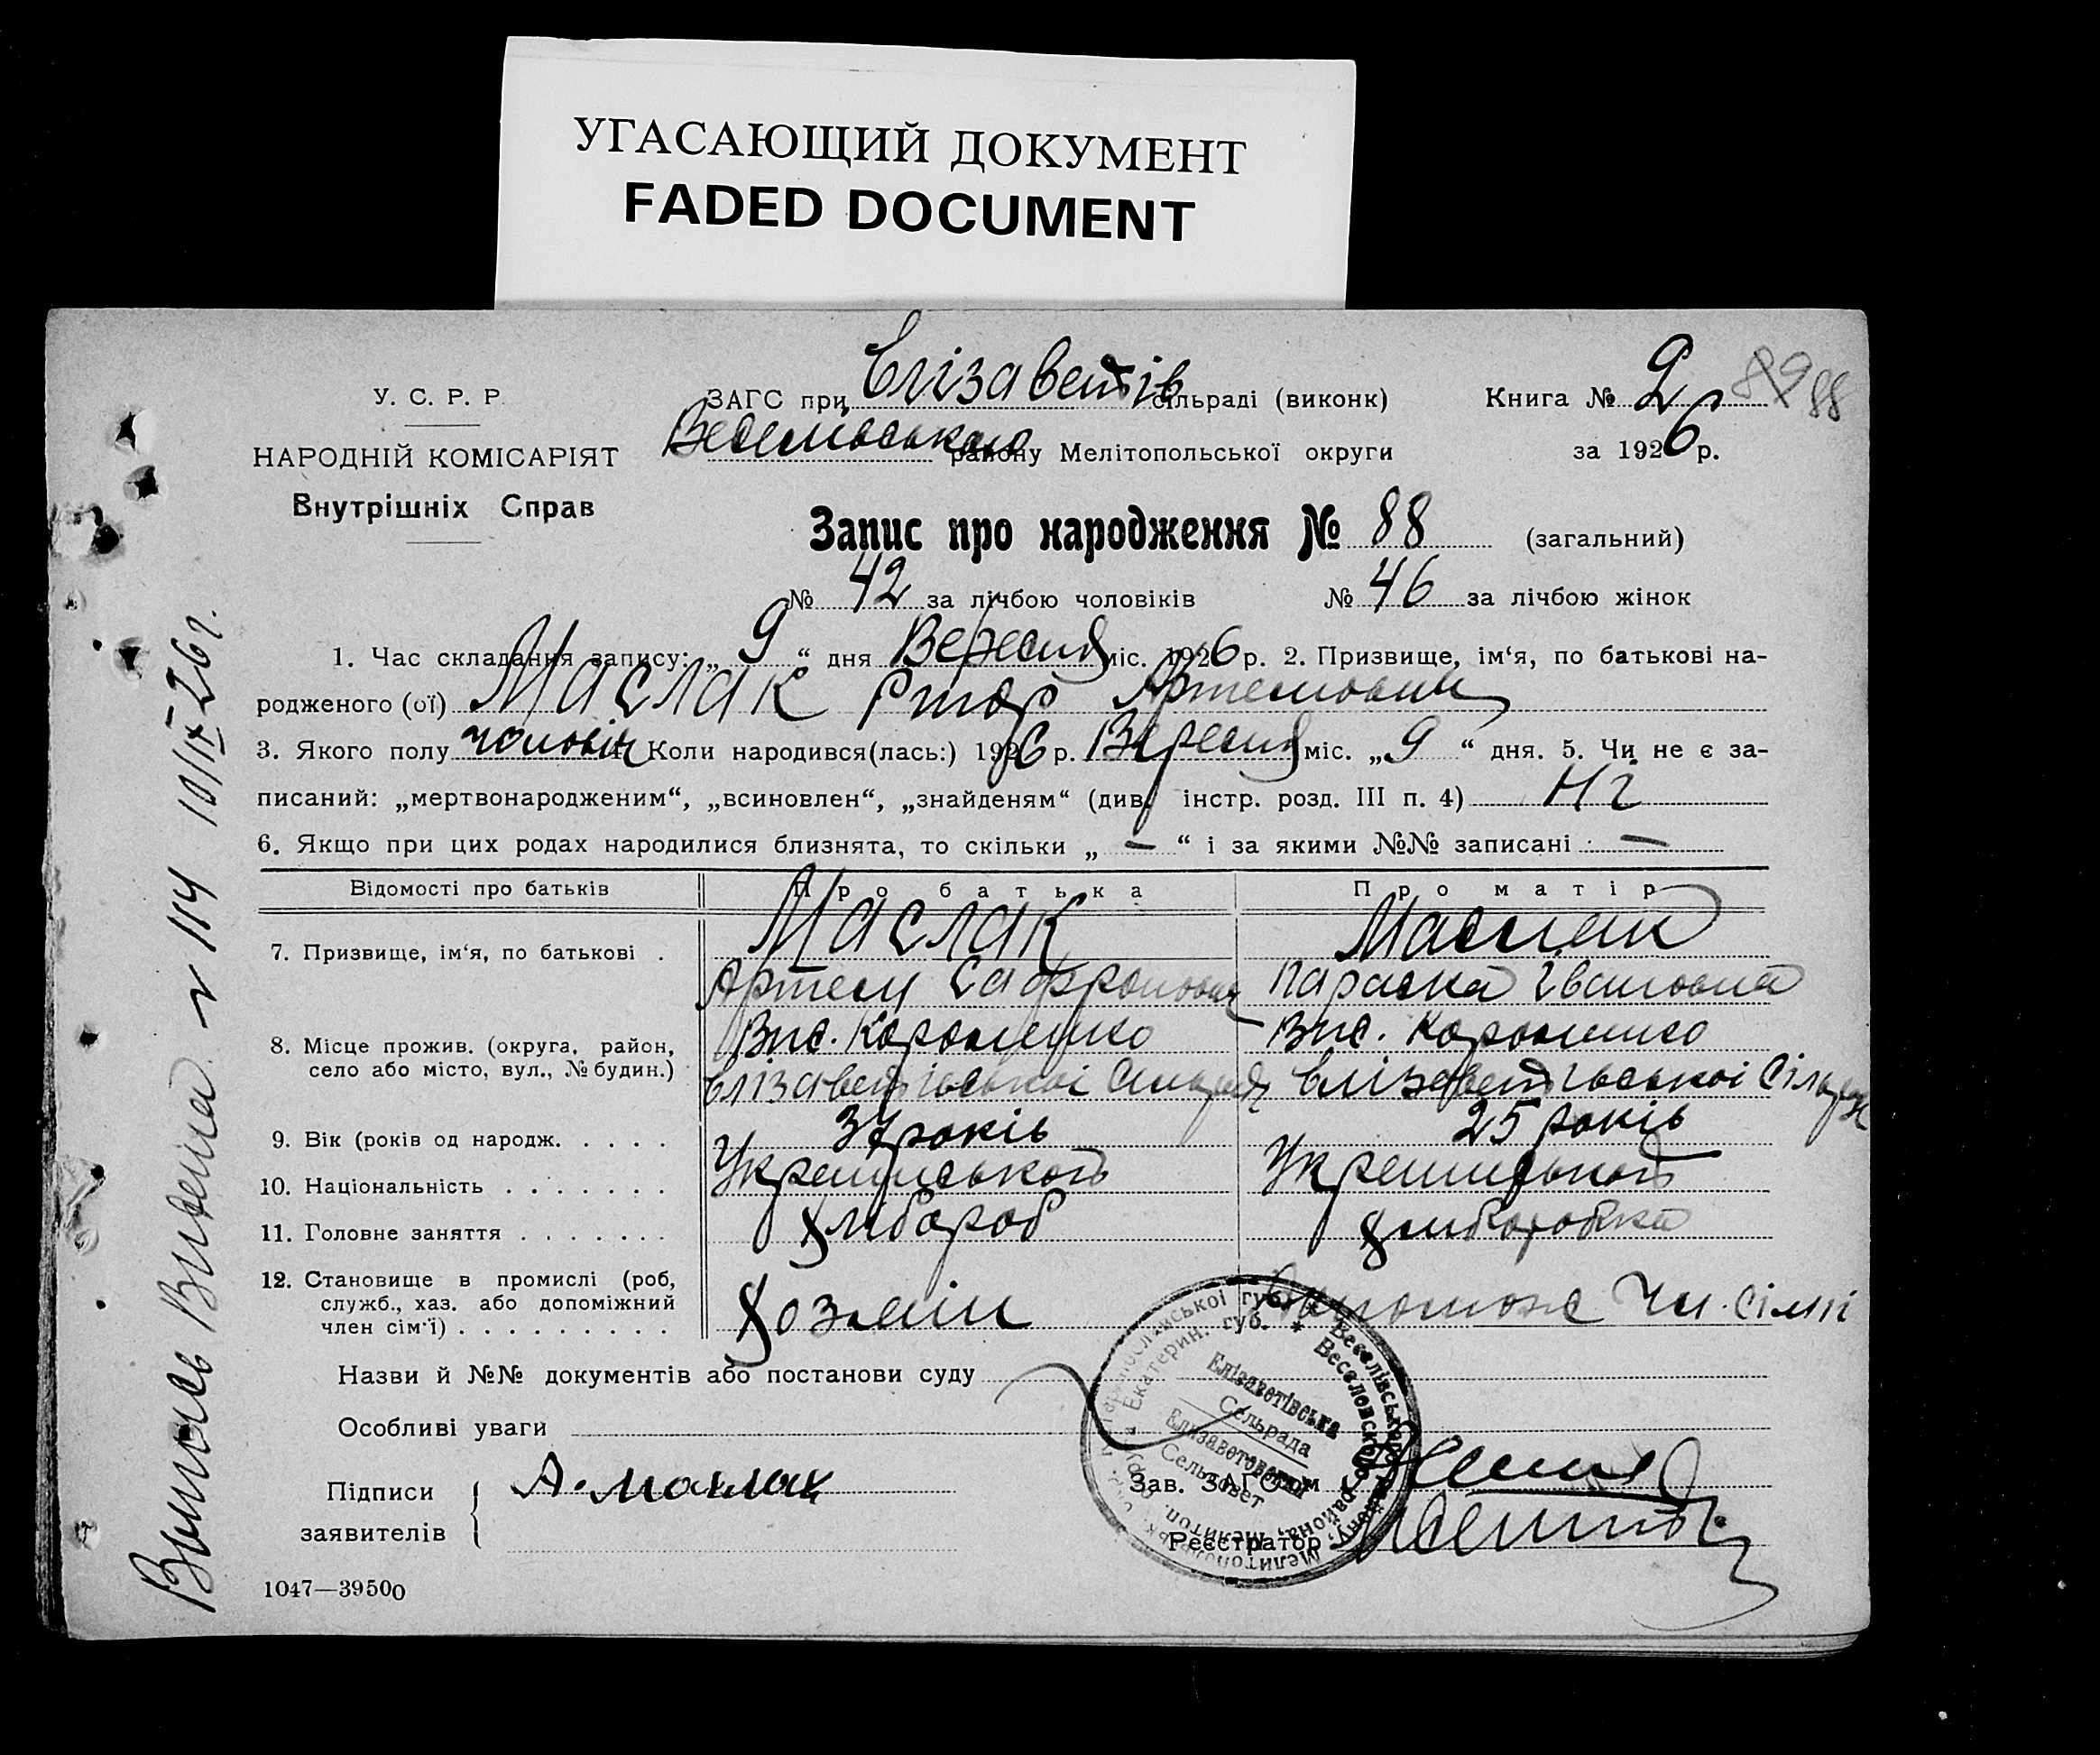 УГАСАЮЩИЙ ДОКУМЕНТ
FADED DOCUMENT
У. С. Р. Р.
НАРОДНІЙ КОМІСАРІЯТ
Внутрішніх Справ
ЗАГС при Єлізаветів сільраді (виконк)
Веселівського району Мелітопольської округи
Книга № 2 89 88
за 1926 р.
Запис про народження № 88 (загальний)
№ 42 за лічбою чоловіків № 46 за лічбою жінок
1. Час складання запису: „ 9 “ дня Вересня міс. 1926 р. 2. Призвище, ім‘я, по батькові на-
родженого (ої) Маслак Артемович
3. Якого полу чоловіч 4. Коли народився(лась:) 1926 р. Вересня міс. „ 9 “ дня. 5. Чи не є за-
писаний: „мертвонародженим“, „всиновлен“, „знайденям“ (див. інстр. розд. III п. 4) Ні
6. Якщо при цих родах народилися близнята, то скільки „ — “ і за якими №№ записані —
Відомості про батьків Про батька Про матір
7. Призвище, ім‘я, по батькові . Маслак Маслак
Артем Сафронович Параска Івановна
8. Місце прожив. (округа, район, село або місто, вул., № будин.)
Єлізаветівськоі Єлізаветівськоі
9. Вік (років од народж. . . . . 37 років 25 років
10. Національність . . . . . . . Украинського Украинського
11. Головне заняття . . . . . . . Хлібороб хлиборобка
12. Становище в промислі (роб, служб., хаз. або допоміжний член сім‘ї) . . . . . . . . . Хозяін Допомож Чл. сімі
Назви й №№ документів або постанови суду
Особливі уваги
Підписи заявителів А. Маслак
Зав. ЗАГС‘ом
Реєстратор
Елізаветівська
Сельрада
Елизаветовский
Сельсовет
1047—39500
Выпись Видена № 114 10/IX 26 г.